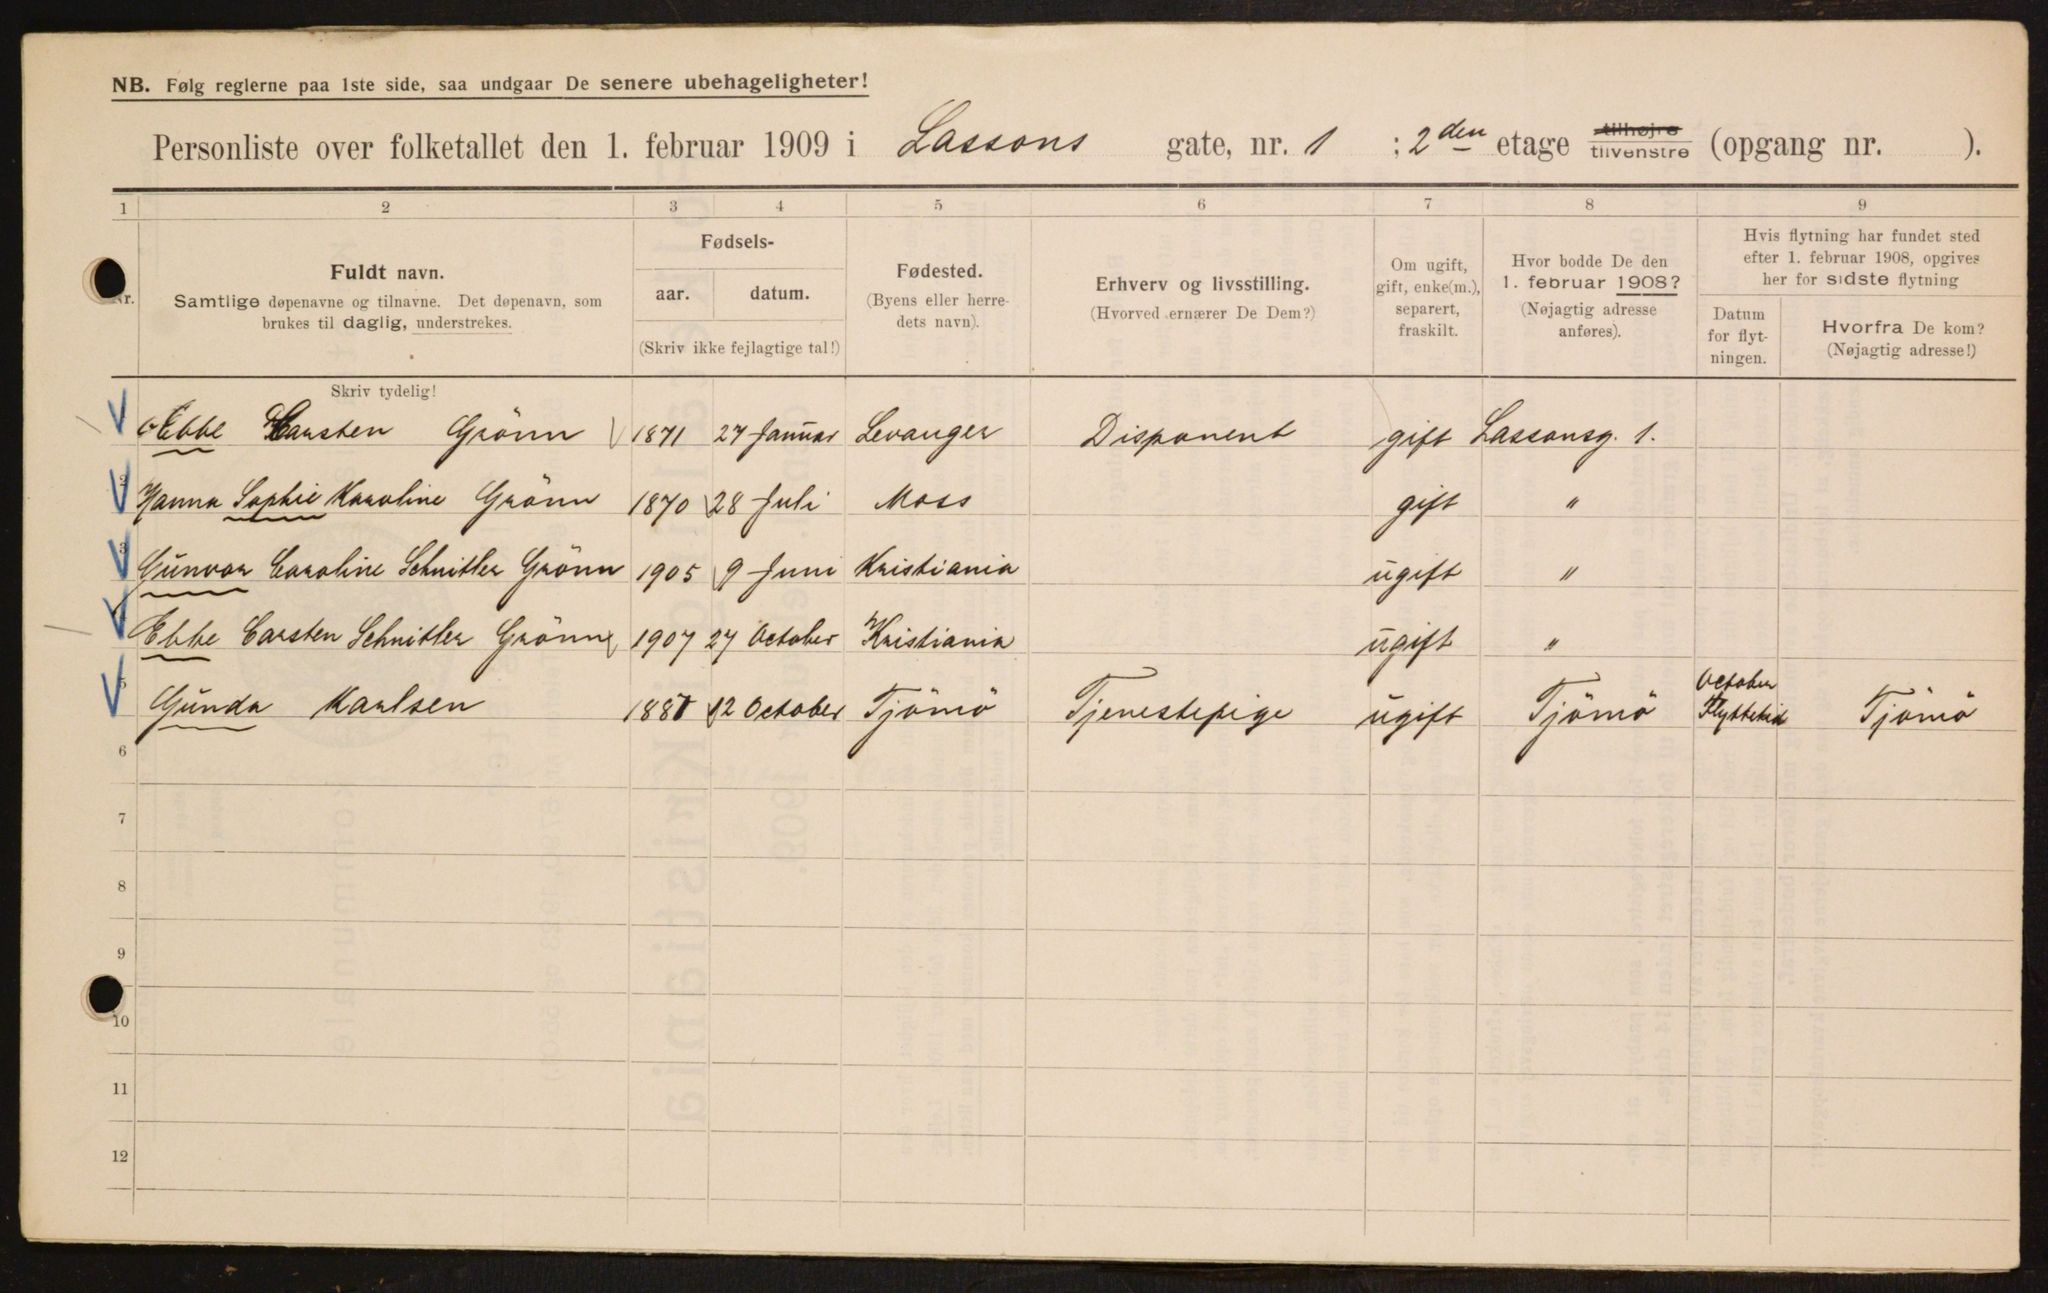 NB. Følg reglerne paa 1ste side, saa undgaar De senere ubehageligheter!
Personliste over folketallet den 1. februar 1909 i Lassons gate, nr. 1 ; 2den etage tilhøjre tilvenstre (opgang nr. ).
1 2 3 4 5 6 7 8 9
Nr.
Fuldt navn.
Samtlige døpenavne og tilnavne. Det døpenavn, som
brukes til daglig, understrekes.
Fødsels-
aar. datum.
(Skriv ikke fejlagtige tal!)
Fødested.
(Byens eller herre-
dets navn).
Erhverv og livsstilling.
(Hvorved ernærer De Dem?)
Om ugift,
gift, enke(m.),
separert,
fraskilt.
Hvor bodde De den
1. februar 1908?
(Nøjagtig adresse
anføres).
Hvis flytning har fundet sted
efter 1. februar 1908, opgives
her for sidste flytning
Datum
for flyt-
ningen.
Hvorfra De kom?
(Nøjagtig adresse!)
Skriv tydelig!
Ebbe Carsten Grönn 1871 27 Januar Levanger Disponent gift Lassonsg. 1.
2 Hanna Sophie Karoline Grönn 1870 28 Juli Moss gift "
3 Gunvor Caroline Schnitler Grönn 1905 9 Juni Kristiania ugift "
Ebbe Carsten Schnitler Grönn 1907 27 October Kristiania ugift "
5 Gunda Karlsen 12 October Tjömö Tjenestepige ugift Tjömö October Flyttetid Tjömö
6
7
8
9
10
11
12